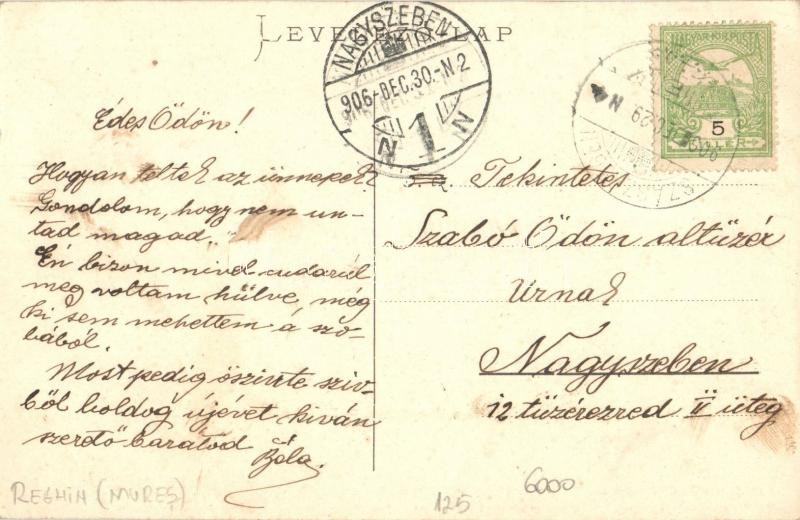 LEVELEZŐ-LAP
NAGYSZEBEN
906-DEC.30.-N.2
1
N N
MAGYAR KIR. POSTA
5
FILLÉR
Édes Ödön!
Hogyan teltek az ünnepek
Gondolom, hogy nem un-
tad magad."
Én bizon mivel cudarúl
meg voltam hülve, még
ki sem mehettem a szo-
bából.
Most pedig őszinte sziv-
ből boldog újévet kiván
szerető barátod
Béla.
Tekintetes
Szabó Ödön altüzér
Urnak
Nagyszeben
12 tüzérezred II üteg
REGHIN (MUREȘ)
125
6000